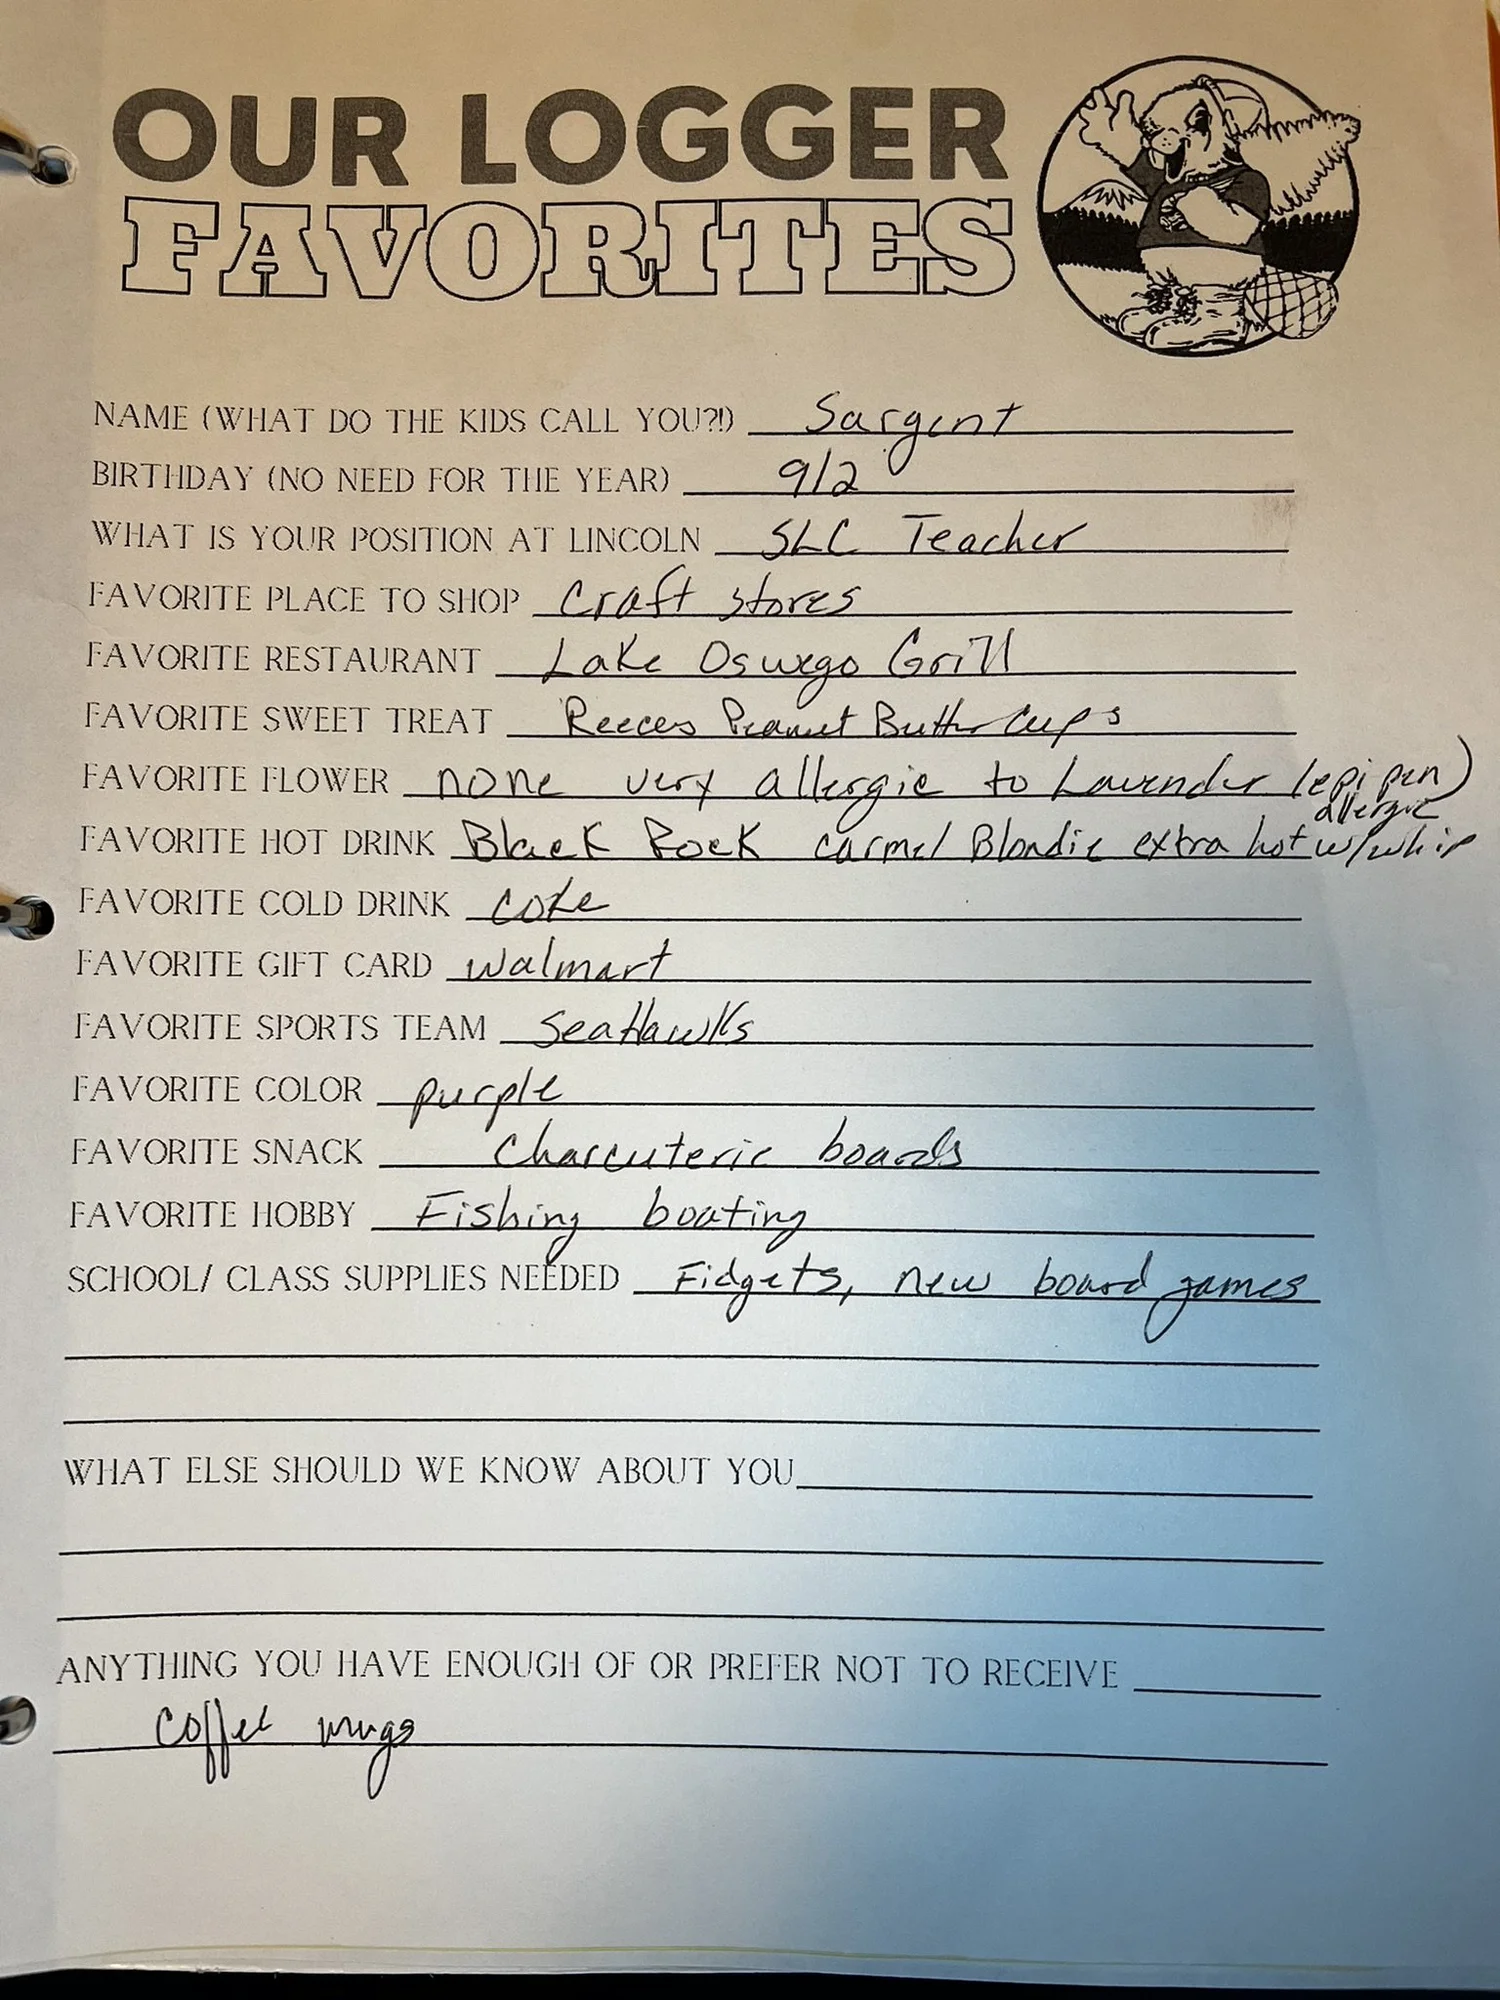 OUR LOGGER
FAVORITES
NAME (WHAT DO THE KIDS CALL YOU?!) Sargent
BIRTHDAY (NO NEED FOR THE YEAR) 9/2
WHAT IS YOUR POSITION AT LINCOLN SLC Teacher
FAVORITE PLACE TO SHOP Craft stores
FAVORITE RESTAURANT Lake Oswego Grill
FAVORITE SWEET TREAT Reeces Peanut Butter Cups
FAVORITE FLOWER none very allergic to Lavender (epi pen)
allergic
FAVORITE HOT DRINK Black Rock carmel Blondie extra hot w/whip
FAVORITE COLD DRINK coke
FAVORITE GIFT CARD walmart
FAVORITE SPORTS TEAM SeaHawks
FAVORITE COLOR purple
FAVORITE SNACK Charcuterie boards
FAVORITE HOBBY Fishing boating
SCHOOL/ CLASS SUPPLIES NEEDED Fidgets, new board games
WHAT ELSE SHOULD WE KNOW ABOUT YOU
ANYTHING YOU HAVE ENOUGH OF OR PREFER NOT TO RECEIVE
coffee mugs